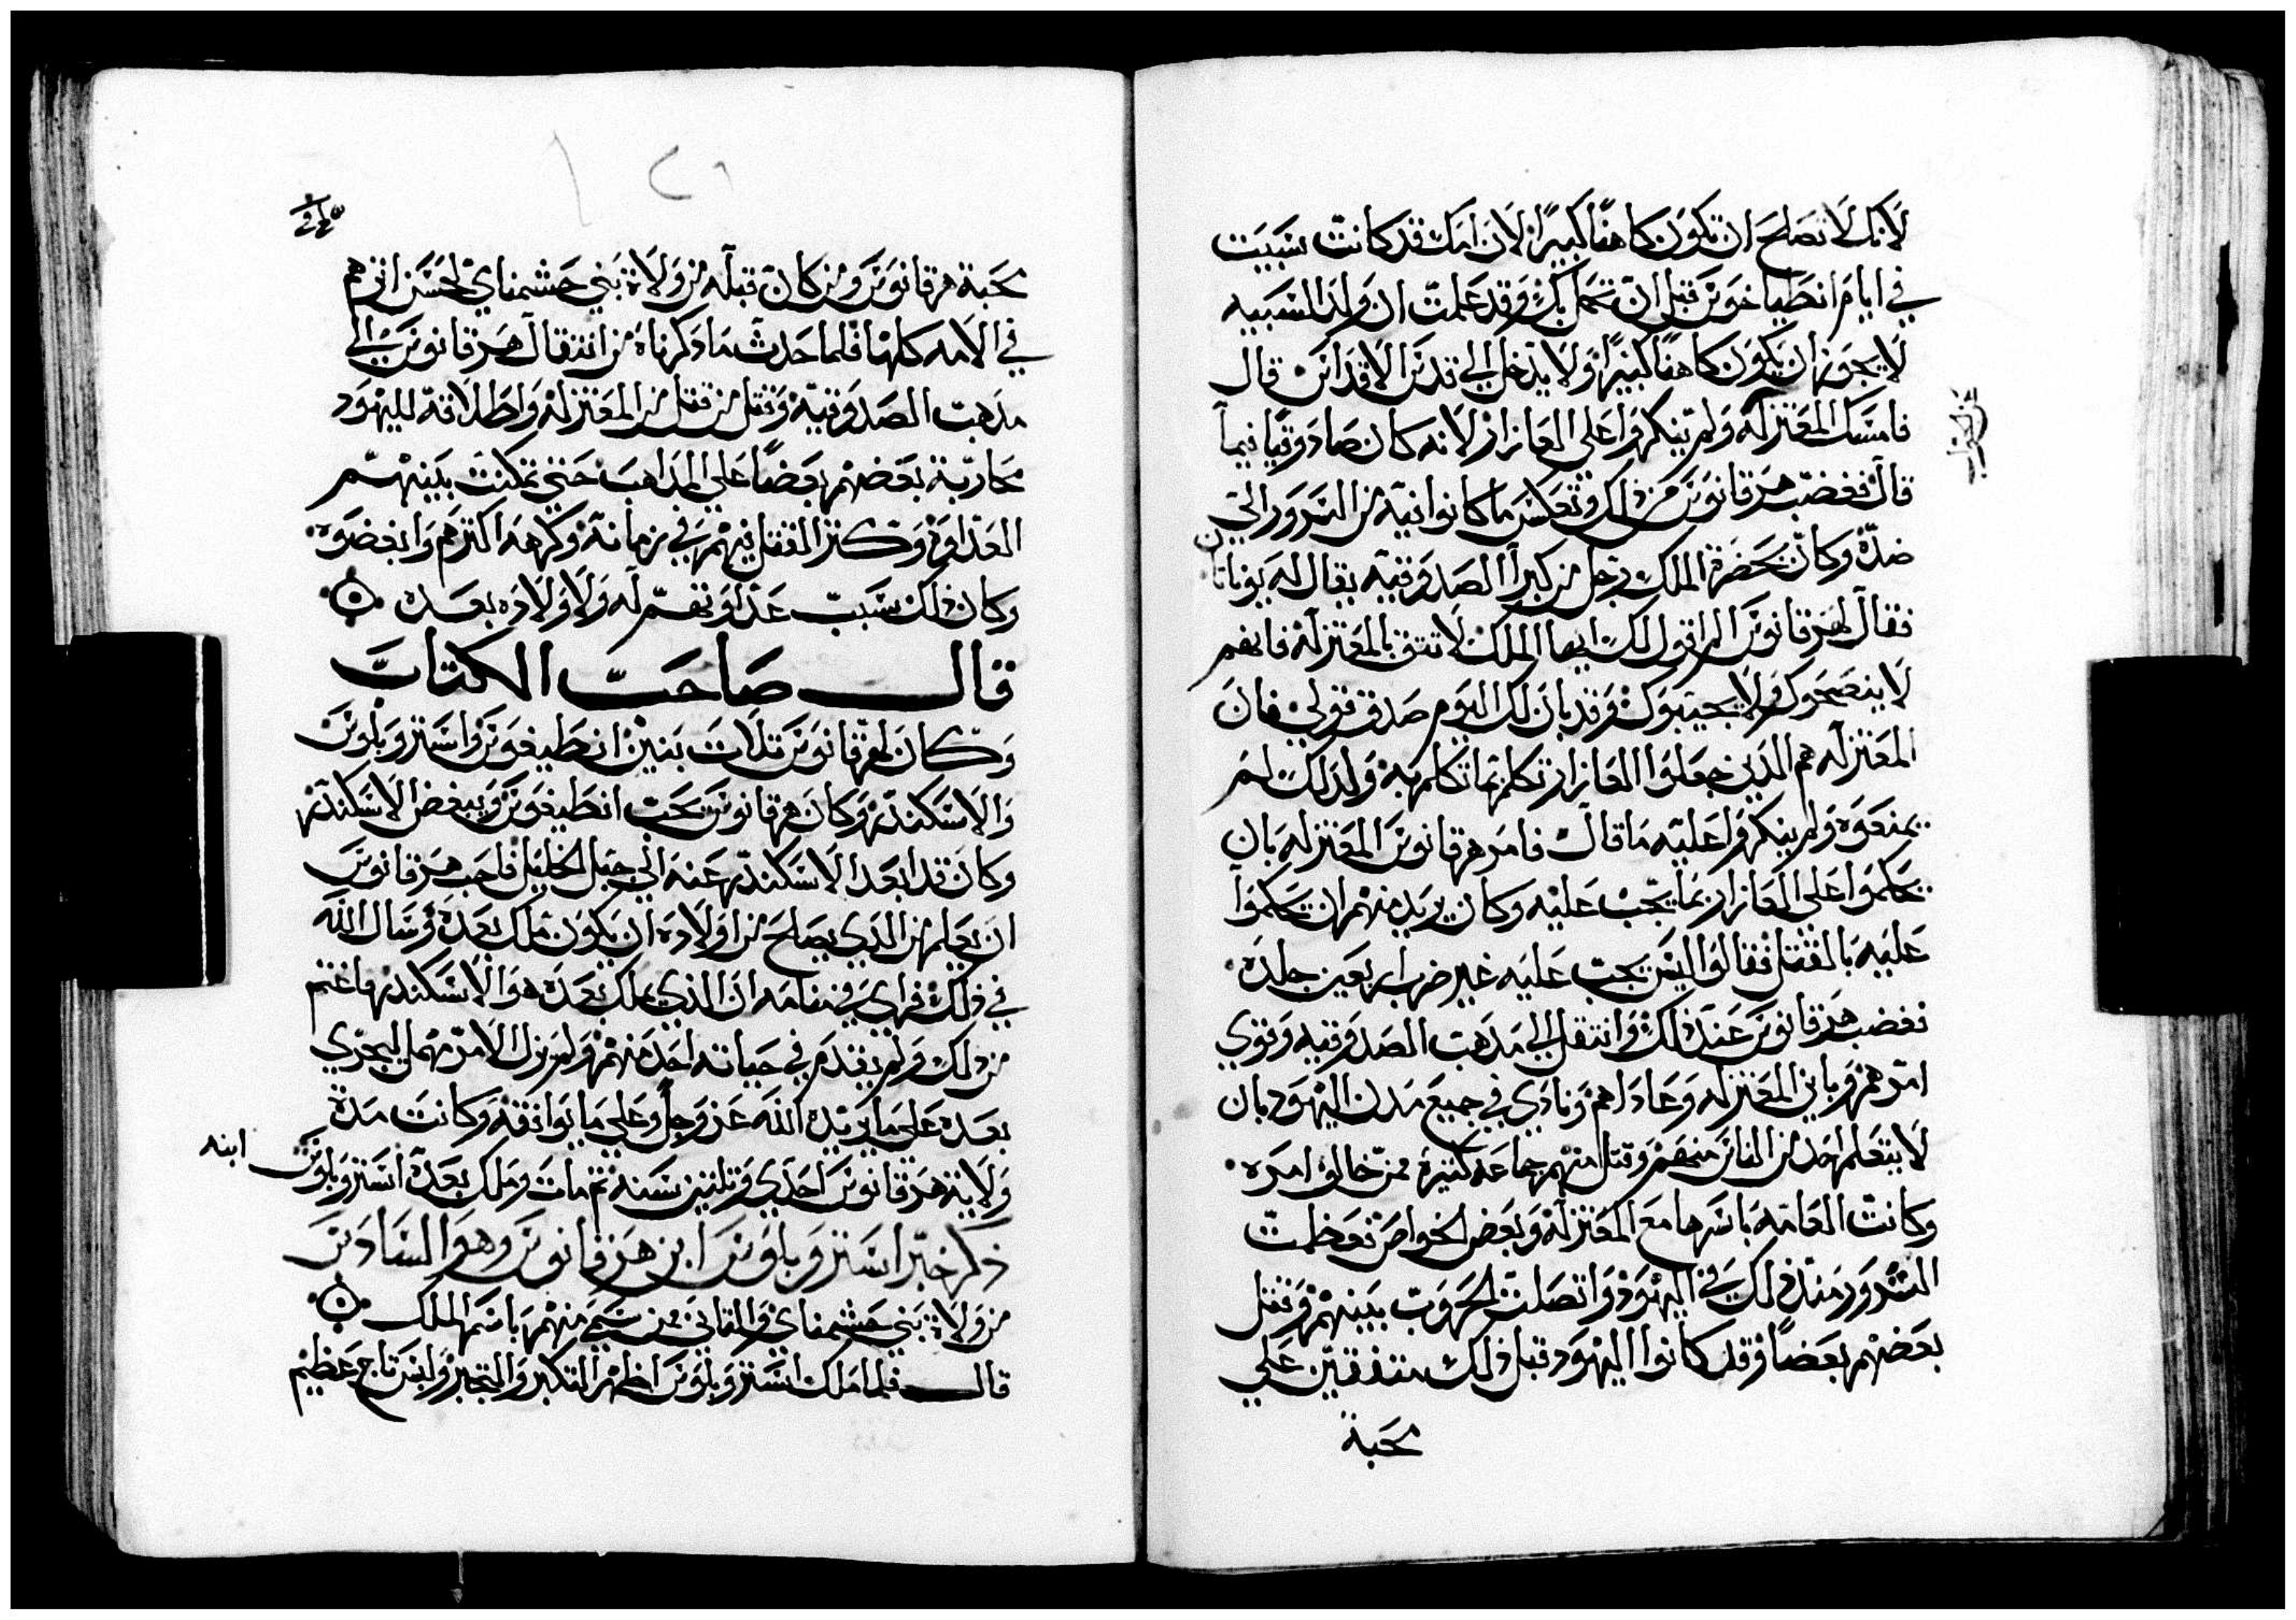 لانك لا تصلح ان تكون كاهنا كبيرا لان امك قد كانت سبيت
في ايام انطياخوس قبل ان تحمل بك وقد علمت ان ولد المسبيه
لا يجوز ان يكون كاهنا كبيرا ولا يدخل الي قدس الاقداس قال
فامسك المعتزله ولم ينكروا علي العازار لانه كان صادوقيا فيما
قال فغضب هرقانوس من ذلك وتعكس ما كانوا فيه من السرور الي
ضده وكان بحضرة الملك رجل من كبرا الصدوقيه يقال له يوناتان
فقال لهرقانوس الم اقول لك ايها الملك لا تتق بالمعتزله فانهم
لا ينصحوك ولا يحبوك وقد بان لك اليوم صدق قولي فان
المعتزله هم الدين جعلوا العازار تكلم بما تكلم به ولدلك لم
يمنعوه ولم ينكروا عليه ما قال فامر هرقانوس المعتزله بان
يحكموا علي العازار بما يجب عليه وكان يريد منهم ان يحكموا
عليه بالقتل فقالوا ليس يجب عليه غير ضرب اربعين جلده
فغضب هرقانوس عند ذلك وانتقل الي مدهب الصدوقيه وقوي
امرهم وباين المعتزله وعاداهم ونادي في جميع مدن اليهود بان
لا يتعلم احد من الناس منهم وقتل منهم جماعه كتيرة ممن خالف امره
وكانت العامه باسرها مع المعتزله وبعض الخواص فعظمت
الشرور مند ذلك في اليهود واتصلت الحروب بينهم وقتل
بعضهم بعضا وقد كانوا اليهود قبل ذلك متفقين علي
محبة
محبة هرقانوس ومن كان قبله من ولاة بني حشمناي لحسن اثرهم
في الامه كلها فلما حدث ما دكرناه من انتقال هرقانوس الي
مدهب الصدوقيه وقتل من قتل من المعتزله واطلاقه لليهود
محاربة بعضهم بعضا علي المداهب حتي تمكنت بينهم
العداوة وكتر القتل فيهم في زمانه وكرهه اكترهم وابغضوه
وكان ذلك سبب عداوتهم له ولاولاده بعده
قال صاحب الكتاب
وكان لهرقانوس تلات بنين انطيغوس واستروبلوس
والاسكندر وكان هرقانوس يحب انطيغوس ويبغض الاسكندر
وكان قد ابعد الاسكندر عنه الي جبل الخليل فاحب هرقانوس
ان يعلم من الدي يصلح من اولاده ان يكون ملك بعده وسال الله
في ذلك فراي في منامه ان الذي يملك بعده هو الاسكندر فاغتم
من ذلك ولم يقدم في حياته احد منهم ولم يزل الامر مهمل ليجري
بعده علي ما يريده الله عز وجل وعلي ما يوافقه وكانت مدة
ولاية هرقانوس احدي وتلتين سنه تم مات وملك بعده استروبلوس ابنه
ذكر خبر استروبلوس ابن هرقانوس وهو السادس
من ولاة بني حشمناي والتاني ممن سمي منهم باسم الملك
قال فلما ملك استروبلوس اظهر التكبر والتجبر ولبس تاج عظيم